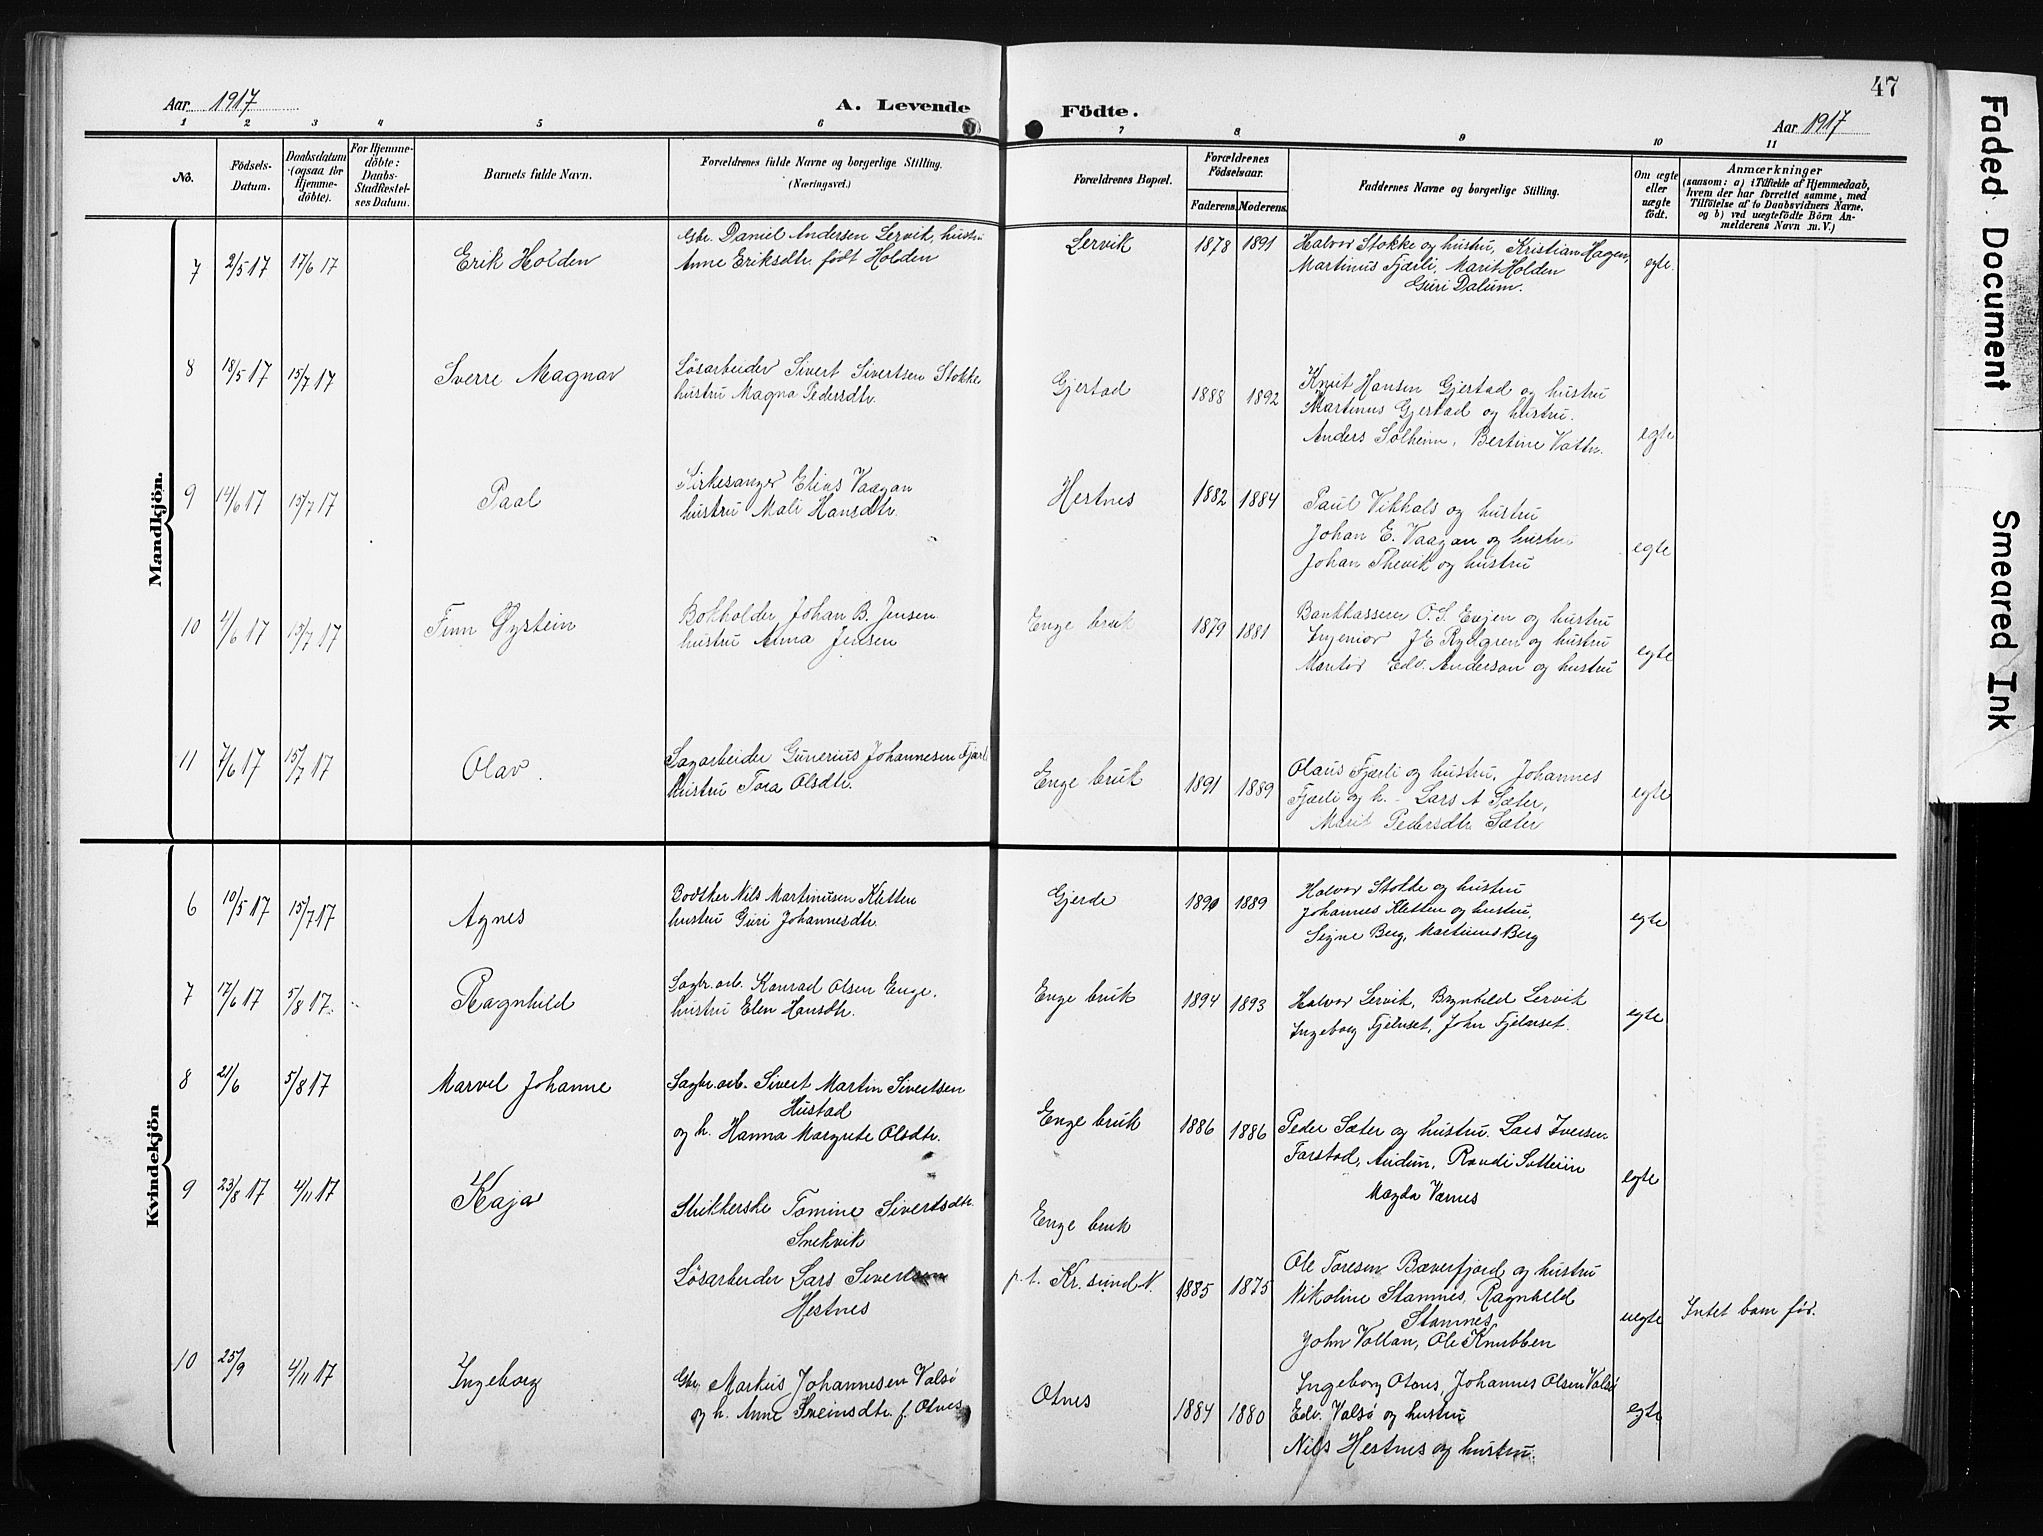 Aar 1917
A. Levende
Födte.
Aar 1917
47
1 2 3 4 5 6 7 8 9 10 11
No.
Födsels-
Datum.
Daabsdatum
(ogsaa for
Hjemme-
döbte).
For Hjemme-
döbte:
Daabs-
Stadfæstel-
ses Datum.
Barnets fulde Navn.
Forældrenes fulde Navne og borgerlige Stilling.
(Næringsvei.)
Forældrenes Bopæl.
Forældrenes
Födselsaar.
Faderens.
Moderens.
Faddernes Navne og borgerlige Stilling.
Om ægte
eller
uægte
födt.
Anmærkninger
(saasom: a) i Tilfælde af Hjemmedaab,
hvem der har forrettet samme, med
Tilföielse af to Daabsvidners Navne.
og b) ved uægtefödte Börn An-
melderens Navn m. V.)
Mandkjön.
7 2/5 17 17/6 17 Erik Holden
Gbr. Daniel Andersen Lervik, hustru
Anne Eriksdtr. født Holden
Lervik 1878 1891
Halvor Stokke og hustru, Kristian Hagen,
Martinus Fjærli, Marit Holden
Guri Dalum.
egte.
8 18/5 17 15/7 17 Sverre Magnar
Løsarbeider Sivert Sivertsen Stokke
hustru Magna Pedersdtr.
Gjerstad 1888 1892
Knut Hansen Gjerstad og hustru
Martinus Gjerstad og hustru.
Anders Solheim, Bertine Vattn.
egte
9 14/6 17 15/7 17 Paal
Kirkesanger Elias Vaagan
hustru Mali Hansdtr.
Hestnes 1882 1884
Paul Vikhals og hustru
Johan E. Vaagan og hustru
Johan Thevik og hustru
egte
10 4/6 17 15/7 17 Finn Øystein
Bokholder Johan B. Jensen
hustru Anna Jensen
Enge bruk 1879 1881
Bankkasserer O. S. Evjen og hustru
Ingeniør J E Rydgren og hustru
Montør Edv. Anderson og hustru
egte
11 7/6 17 15/7 17 Olav.
Sagarbeider Gunerius Johannesen Fjærli
Hustru Tora Olsdtr.
Enge bruk 1891 1889
Olaus Fjærli og hustru, Johannes
Fjærli og h. - Lars A Sæter,
Marit Pedersdtr Sæter
egte
Kvindekjön
6 10/5 17 15/7 17 Agnes
Bødtker Nils Martinusen Kletten
hustru Guri Johannesdtr.
Gjerde 1890 1889
Halvor Stokke og hustru
Johannes Kletten og hustru,
Signe Berg, Martinus Berg
egte
7 17/6 17 5/8 17 Ragnhild
Sagbr. arb. Konrad Olsen Enge,
hustru Elen Hansdtr.
Enge bruk 1894 1893
Halvor Lervik, Brynhild Lervik
Ingeborg Fjelnset, John Fjelnset.
egte
8 21/6 5/8 17 Marvel Johanne
Sagbr. arb. Sivert Martin Sivertsen
Hustad
og h. Hanna Margrete Olsdtr.
Enge bruk 1886 1886
Peder Sæter og hustru. Lars Iversen
Farstad, Audun, Randi Sætteiin
Magda Værnes
egte
9 23/8 17 4/11 17 Kaja
Strikkerske Tomine Sivertsdtr.
Snekvik
Løsarbeider Lars Sivertsen
Hestnes
Enge bruk
p. t. Kr. sund N. 1885 1875
Ole Toresen Bæverfjord og hustru
Nikoline Stamnes, Ragnhild
Stamnes,
John Vollan, Ole Knubben
uegte
Intet barn før.
10 25/9 4/11 17 Ingeborg
Gbr. Markus Johannesen Valsø
og h. Anne Sveinsdtr. f. Otnes
Otnes 1884 1880
Ingeborg Otnes, Johannes Olsen Valsø
Edv. Valsø og hustru
Nils Hestnes og hustru.
egte
Faded Document
Smeared Ink